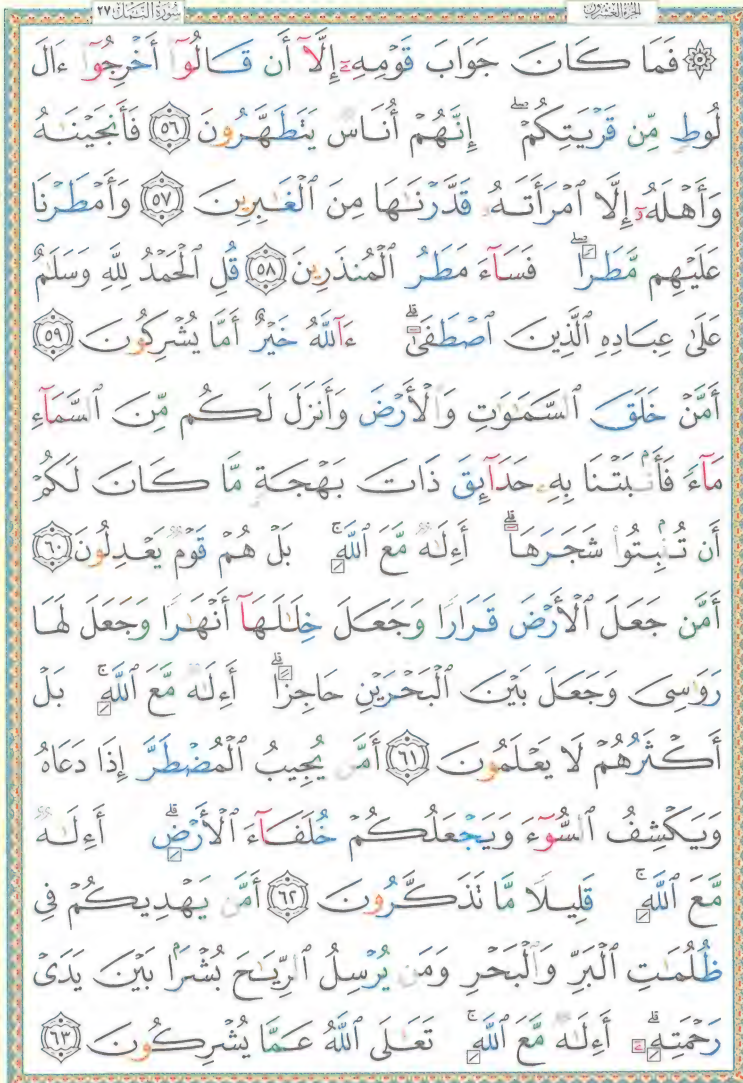 الجزء العشرون سورة النمل ٢٧
۞ فَمَا كَانَ جَوَابَ قَوْمِهِۦٓ إِلَّآ أَن قَالُوٓا۟ أَخْرِجُوٓا۟ ءَالَ
لُوطٍ مِّن قَرْيَتِكُمْ ۖ إِنَّهُمْ أُنَاسٌ يَتَطَهَّرُونَ ٥٦ فَأَنجَيْنَٰهُ
وَأَهْلَهُۥٓ إِلَّا ٱمْرَأَتَهُۥ قَدَّرْنَٰهَا مِنَ ٱلْغَٰبِرِينَ ٥٧ وَأَمْطَرْنَا
عَلَيْهِم مَّطَرًا ۖ فَسَآءَ مَطَرُ ٱلْمُنذَرِينَ ٥٨ قُلِ ٱلْحَمْدُ لِلَّهِ وَسَلَٰمٌ
عَلَىٰ عِبَادِهِ ٱلَّذِينَ ٱصْطَفَىٰٓ ۗ ءَآللَّهُ خَيْرٌ أَمَّا يُشْرِكُونَ ٥٩
أَمَّنْ خَلَقَ ٱلسَّمَٰوَٰتِ وَٱلْأَرْضَ وَأَنزَلَ لَكُم مِّنَ ٱلسَّمَآءِ
مَآءً فَأَنۢبَتْنَا بِهِۦ حَدَآئِقَ ذَاتَ بَهْجَةٍ مَّا كَانَ لَكُمْ
أَن تُنۢبِتُوا۟ شَجَرَهَآ ۗ أَءِلَٰهٌ مَّعَ ٱللَّهِ ۚ بَلْ هُمْ قَوْمٌ يَعْدِلُونَ ٦٠
أَمَّن جَعَلَ ٱلْأَرْضَ قَرَارًا وَجَعَلَ خِلَٰلَهَآ أَنْهَٰرًا وَجَعَلَ لَهَا
رَوَٰسِىَ وَجَعَلَ بَيْنَ ٱلْبَحْرَيْنِ حَاجِزًا ۗ أَءِلَٰهٌ مَّعَ ٱللَّهِ ۚ بَلْ
أَكْثَرُهُمْ لَا يَعْلَمُونَ ٦١ أَمَّن يُجِيبُ ٱلْمُضْطَرَّ إِذَا دَعَاهُ
وَيَكْشِفُ ٱلسُّوٓءَ وَيَجْعَلُكُمْ خُلَفَآءَ ٱلْأَرْضِ ۗ أَءِلَٰهٌ
مَّعَ ٱللَّهِ ۚ قَلِيلًا مَّا تَذَكَّرُونَ ٦٢ أَمَّن يَهْدِيكُمْ فِى
ظُلُمَٰتِ ٱلْبَرِّ وَٱلْبَحْرِ وَمَن يُرْسِلُ ٱلرِّيَٰحَ بُشْرًۢا بَيْنَ يَدَىْ
رَحْمَتِهِۦٓ ۗ أَءِلَٰهٌ مَّعَ ٱللَّهِ ۚ تَعَٰلَى ٱللَّهُ عَمَّا يُشْرِكُونَ ٦٣